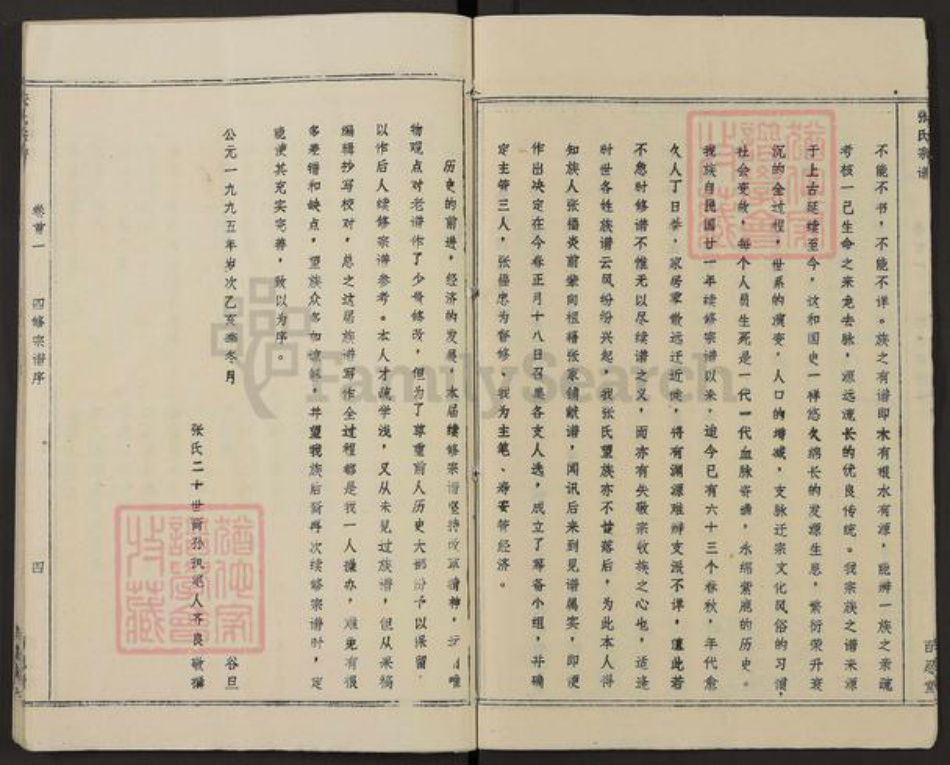 张氏宗谱
百忍堂
不能不书，不能不详。族之有谱即木有根水有源，能辨一族之亲疏
考核一己生命之来龙去脉，源远流长的优良传统。我宗族之谱来源
于上古延续至今，这和国史一样悠久绵长的发源生息，繁衍荣升衰
沉的全过程，世系的演变，人口的增减，支脉迁宗文化风俗的习惯，
社会变故，每个人员生死是一代一代血脉奇迹，永绵紫胞的历史。
我族自民国廿一年续修宗谱以来，迨今已有六十三个春秋，年代愈
久人丁日繁，家居零散远迁近徙，将有渊源难辨支派不详，值此若
不急时修谱不惟无以尽续谱之义，而亦有失敬宗收族之心也，适逢
时世各姓族谱云风纷纷兴起，我张氏望族亦不甘落后，为此本人得
知族人张福炎前辈向祖籍张家铺献谱，闻讯后来到见谱属实，即便
作出决定在今春正月十八日召集各支人选，成立了筹备小组，并确
定主管三人，张福忠为督修，我为主笔、寿安管经济。
历史的前进，经济的发展，本届续修宗谱坚持改革精神，唯
物观点对老谱作了少量修改，但为了尊重前人历史大部份予以保留
以作后人续修宗谱参考。本人才疏学浅，又从未见过族谱，但从采稿
编辑抄写校对，总之这届族谱写作全过程都是我一人操办，难免有很
多差错和缺点，望族众多加谅解，并望我族后裔再次续修宗谱时，定
能使其充实完善，致以为序。
公元一九九五年岁次乙亥季冬月 谷旦
张氏二十世裔孙执笔人齐良敬撰
卷首一 四修宗谱序 四
FamilySearch